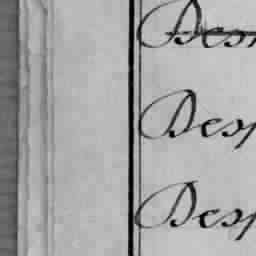 Des
Desp
Desp